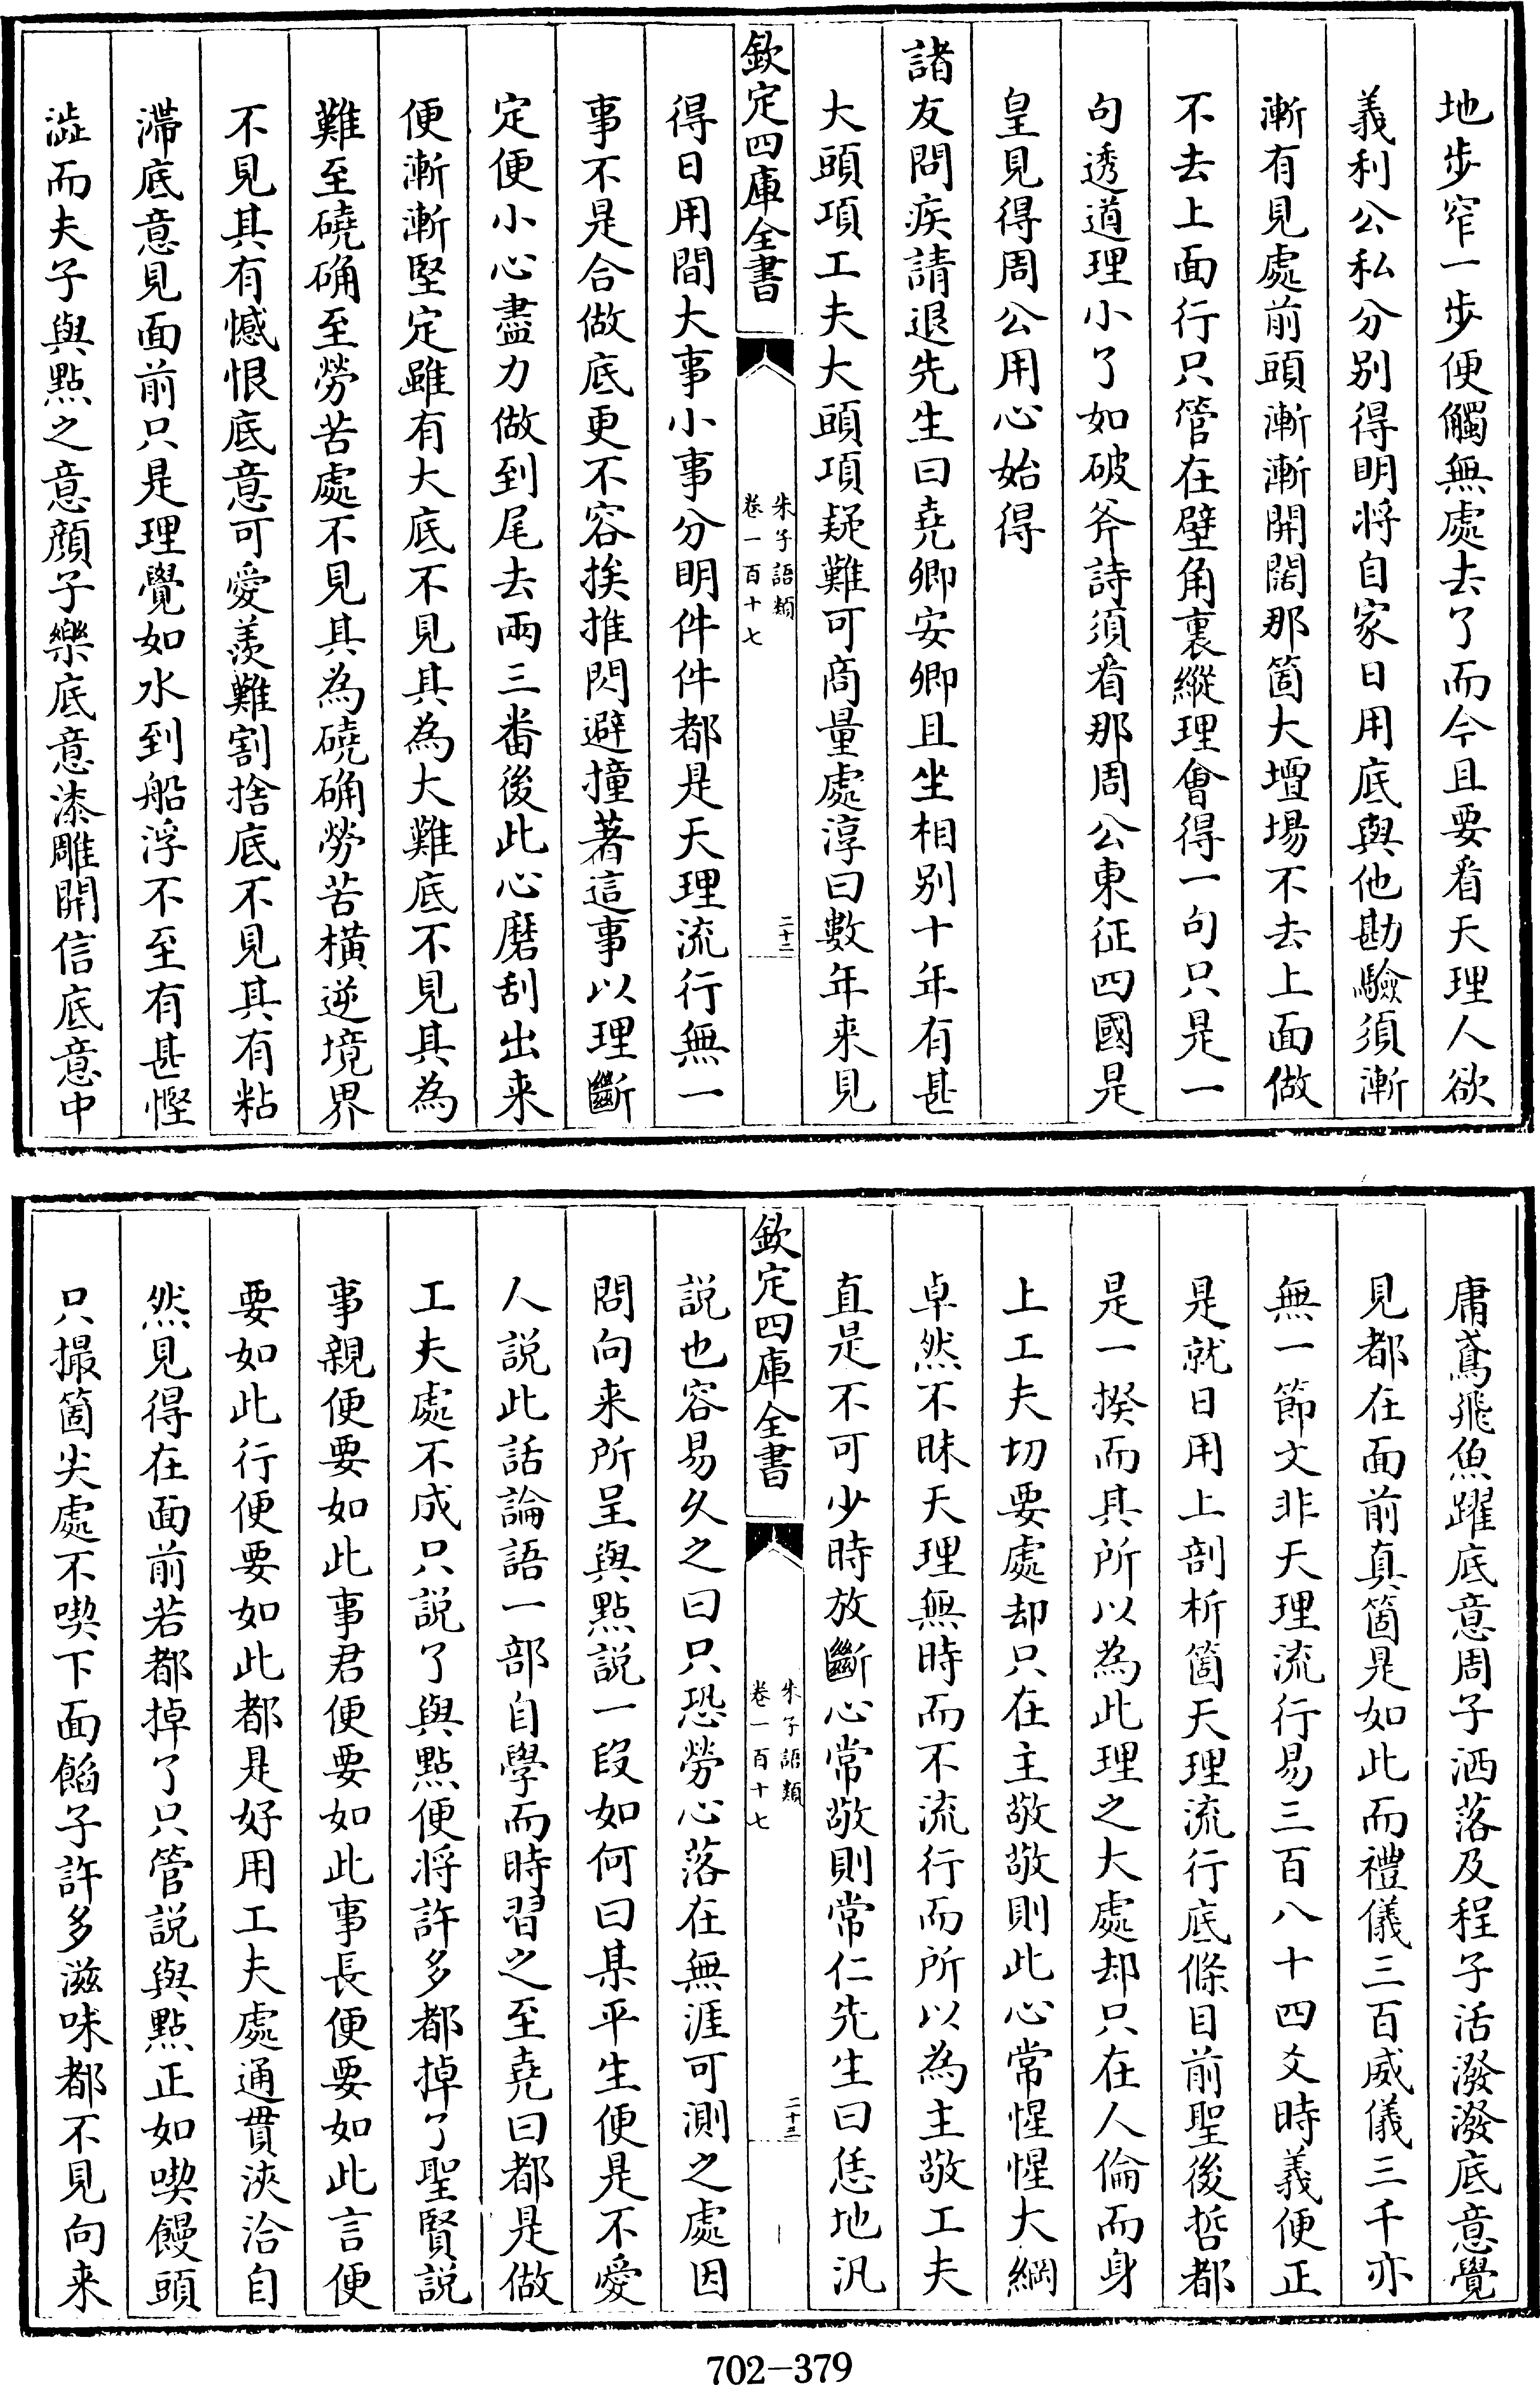 地步窄一步便觸無處去了而今且要看天理人欲
義利公私分别得明将自家日用底與他勘驗須漸
漸有見處前頭漸漸開闊那箇大壇場不去上面做
不去上面行只管在壁角裏縱理會得一句只是一
句透道理小了如破斧詩須看那周公東征四國是
皇見得周公用心始得
諸友問疾請退先生曰堯卿安卿且坐相别十年有甚
大頭項工夫大頭項疑難可商量處淳曰數年来見
欽定四庫全書
朱子語類
卷一百十七
二十二
得日用間大事小事分明件件都是天理流行無一
事不是合做底更不容挨推閃避撞著這事以理斷
定便小心盡力做到尾去兩三番後此心磨刮出来
便漸漸堅定雖有大底不見其為大難底不見其為
難至磽确至勞苦處不見其為磽确勞苦橫逆境界
不見其有憾恨底意可愛羨難割捨底不見其有粘
滯底意見面前只是理覺如水到船浮不至有甚慳
澁而夫子與點之意顔子樂底意漆雕開信底意中
庸鳶飛魚躍底意周子洒落及程子活潑潑底意覺
見都在面前真箇是如此而禮儀三百威儀三千亦
無一節文非天理流行易三百八十四爻時義便正
是就日用上剖析箇天理流行底條目前聖後哲都
是一揆而其所以為此理之大處却只在人倫而身
上工夫切要處却只在主敬敬則此心常惺惺大綱
卓然不昧天理無時而不流行而所以為主敬工夫
直是不可少時放斷心常敬則常仁先生曰恁地汎
欽定四庫全書
朱子語類
卷一百十七
二十三
説也容易久之曰只恐勞心落在無涯可測之處因
問向来所呈與點説一段如何曰某平生便是不愛
人説此話論語一部自學而時習之至堯曰都是做
工夫處不成只説了與點便將許多都掉了聖賢説
事親便要如此事君便要如此事長便要如此言便
要如此行便要如此都是好用工夫處通貫浹洽自
然見得在面前若都掉了只管説與點正如喫饅頭
只撮箇尖處不喫下面餡子許多滋味都不見向来
702-379